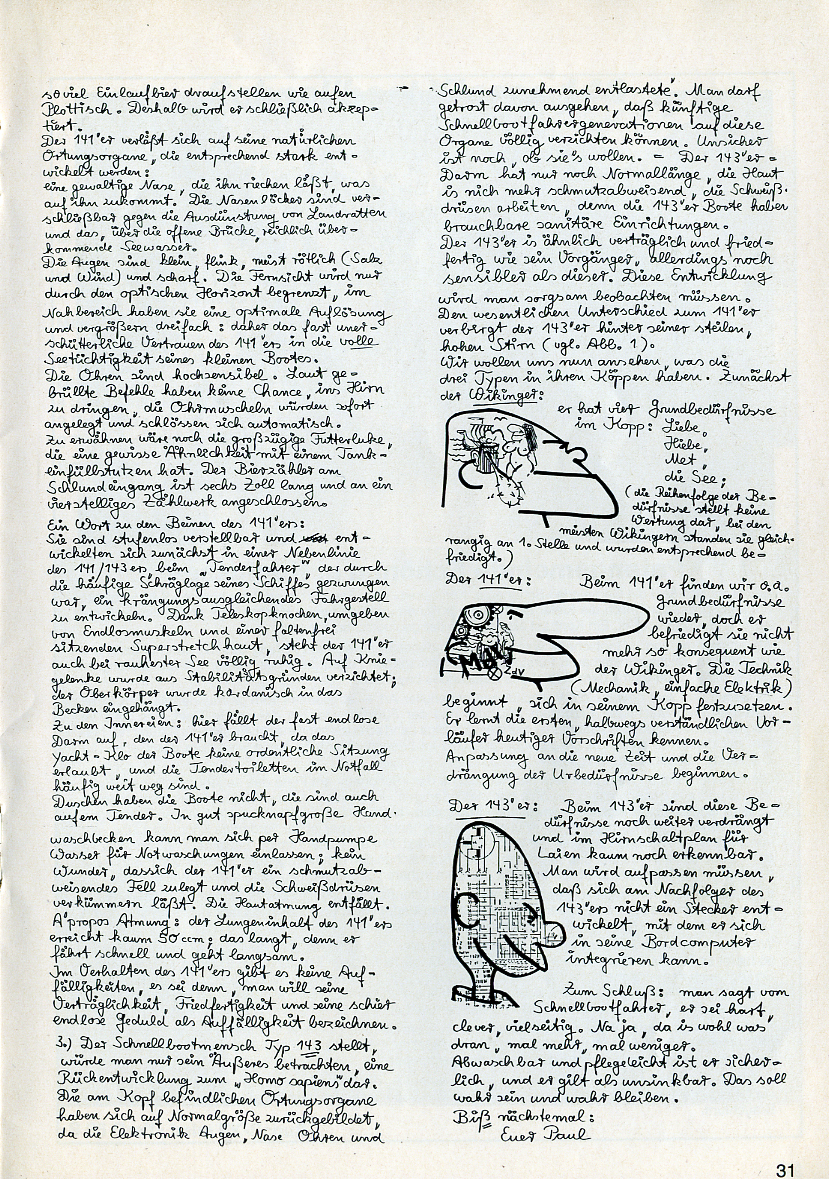 soviel Einlaufbier draufstellen wie aufen
Plottisch. Deshalb wird er schließlich akzep-
tiert.
Der 141'er verläßt sich auf seine natürlichen
Ortungsorgane, die entsprechend stark ent-
wickelt werden:
eine gewaltige Nase, die ihn riechen läßt, was
auf ihn zukommt. Die Nasenlöcher sind ver-
schließbar gegen die Ausdünstung von Landratten
und das, über die offene Brücke, reichlich über-
kommende Seewasser.
Die Augen sind klein, flink, meist rötlich (Salz
und Wind) und scharf. Die Fernsicht wird nur
durch den optischen Horizont begrenzt, im
Nahbereich haben sie eine optimale Auflösung
und vergrößern dreifach: daher das fast uner-
schütterliche Vertrauen des 141'ers in die volle
Seetüchtigkeit seines kleinen Bootes.
Die Ohren sind hochsensibel. Laut ge-
brüllte Befehle haben keine Chance, ins Hirn
zu dringen, die Ohrmuscheln würden sofort
angelegt und schlössen sich automatisch.
Zu erwähnen wäre noch die großzügige Futterluke,
die eine gewisse Ähnlichkeit mit einem Tank-
einfüllstutzen hat. Der Bierzähler am
Schlundeingang ist sechs Zoll lang und an ein
vierstelliges Zählwerk angeschlossen.
Ein Wort zu den Beinen des 141'ers:
Sie sind stufenlos verstellbar und ent-
wickelten sich zunächst in einer Nebenlinie
des 141/143ers beim "Tenderfahrer" der durch
die häufige Schräglage seines Schiffes gezwungen
war, ein krängungsausgleichendes Fahrgestell
zu entwickeln. Dank Teleskopknochen, umgeben
von Endlosmuskeln und einer faltenfrei
sitzenden Superstretchhaut, steht der 141'er
auch bei rauhester See völlig ruhig. Auf Knie-
gelenke wurde aus Stabilitätsgründen verzichtet;
der Oberkörper wurde kardanisch in das
Becken eingehängt.
Zu den Innereien: hier fällt der fast endlose
Darm auf, den der 141'er braucht, da das
Yacht-Klo der Boote keine ordentliche Sitzung
erlaubt, und die Tendertoiletten im Notfall
häufig weit weg sind.
Duschen haben die Boote nicht, die sind auch
aufem Tender. In gut spucknapfgroße Hand-
waschbecken kann man sich per Handpumpe
Wasser für Notwaschungen einlassen; kein
Wunder, dassich der 141'er ein schmutzab-
weisendes Fell zulegt und die Schweißdrüsen
verkümmern läßt. Die Hautatmung entfällt.
A'propos Atmung: der Lungeninhalt des 141'ers
erreicht kaum 50 ccm; das langt, denn er
fährt schnell und geht langsam.
Im Verhalten des 141'ers gibt es keine Auf-
fälligkeiten, es sei denn, man will seine
Verträglichkeit, Friedfertigkeit und seine schier
endlose Geduld als Auffälligkeit bezeichnen.
3.) Der Schnellbootmensch Typ 143 stellt,
würde man nur sein Äußeres betrachten, eine
Rückentwicklung zum "Homo sapiens" dar.
Die am Kopf befindlichen Ortungsorgane
haben sich auf Normalgröße zurückgebildet,
da die Elektronik Augen, Nase Ohren und
Schlund zunehmend entlastete. Man darf
getrost davon ausgehen, daß künftige
Schnellbootfahrergenerationen auf diese
Organe völlig verzichten können. Unsicher
ist noch, ob sie's wollen. - Der 143'er-
Darm hat nur noch Normallänge, die Haut
is nich mehr schmutzabweisend, die Schweiß-
drüsen arbeiten, denn die 143'er Boote haben
brauchbare sanitäre Einrichtungen.
Der 143'er is ähnlich verträglich und fried-
fertig wie sein Vorgänger, allerdings noch
sensibler als dieser. Diese Entwicklung
wird man sorgsam beobachten müssen.
Den wesentlichen Unterschied zum 141'er
verbirgt der 143'er hinter seiner steilen,
hohen Stirn (vgl. Abb. 1).
Wir wollen uns nun ansehen, was die
drei Typen in ihren Köppen haben. Zunächst
der Wikinger:
er hat vier Grundbedürfnisse
im Kopp: Liebe,
Hiebe,
Met,
die See;
(die Reihenfolge der Be-
dürfnisse stellt keine
Wertung dar, bei den
meisten Wikingern standen sie gleich-
rangig an 1. Stelle und wurden entsprechend be-
friedigt.)
Der 141'er: Beim 141'er finden wir o.a.
Grundbedürfnisse
wieder, doch er
befriedigt sie nicht
mehr so konsequent wie
der Wikinger. Die Technik
(Mechanik, einfache Elektrik)
beginnt, sich in seinem Kopf fortzusetzen.
Er lernt die ersten, halbwegs verständlichen Vor-
läufer heutiger Vorschriften kennen.
Anpassung an die neue Zeit und die Ver-
drängung der Urbedürfnisse beginnen.
Der 143'er: Beim 143'er sind diese Be-
dürfnisse noch weiter verdrängt
und im Hirnschaltplan für
Laien kaum noch erkennbar.
Man wird aufpassen müssen,
daß sich am Nachfolger des
143'ers nicht ein Stecker ent-
wickelt, mit dem er sich
in seine Bordcomputer
integrieren kann.
Zum Schluß: man sagt vom
Schnellbootfahrer, er sei hart,
clever, vielseitig. Na ja, da is wohl was
dran, mal mehr, mal weniger.
Abwaschbar und pflegeleicht ist er sicher-
lich, und er gilt als unsinkbar. Das soll
wahr sein und wahr bleiben.
Biß nächstemal:
Euer Paul
31